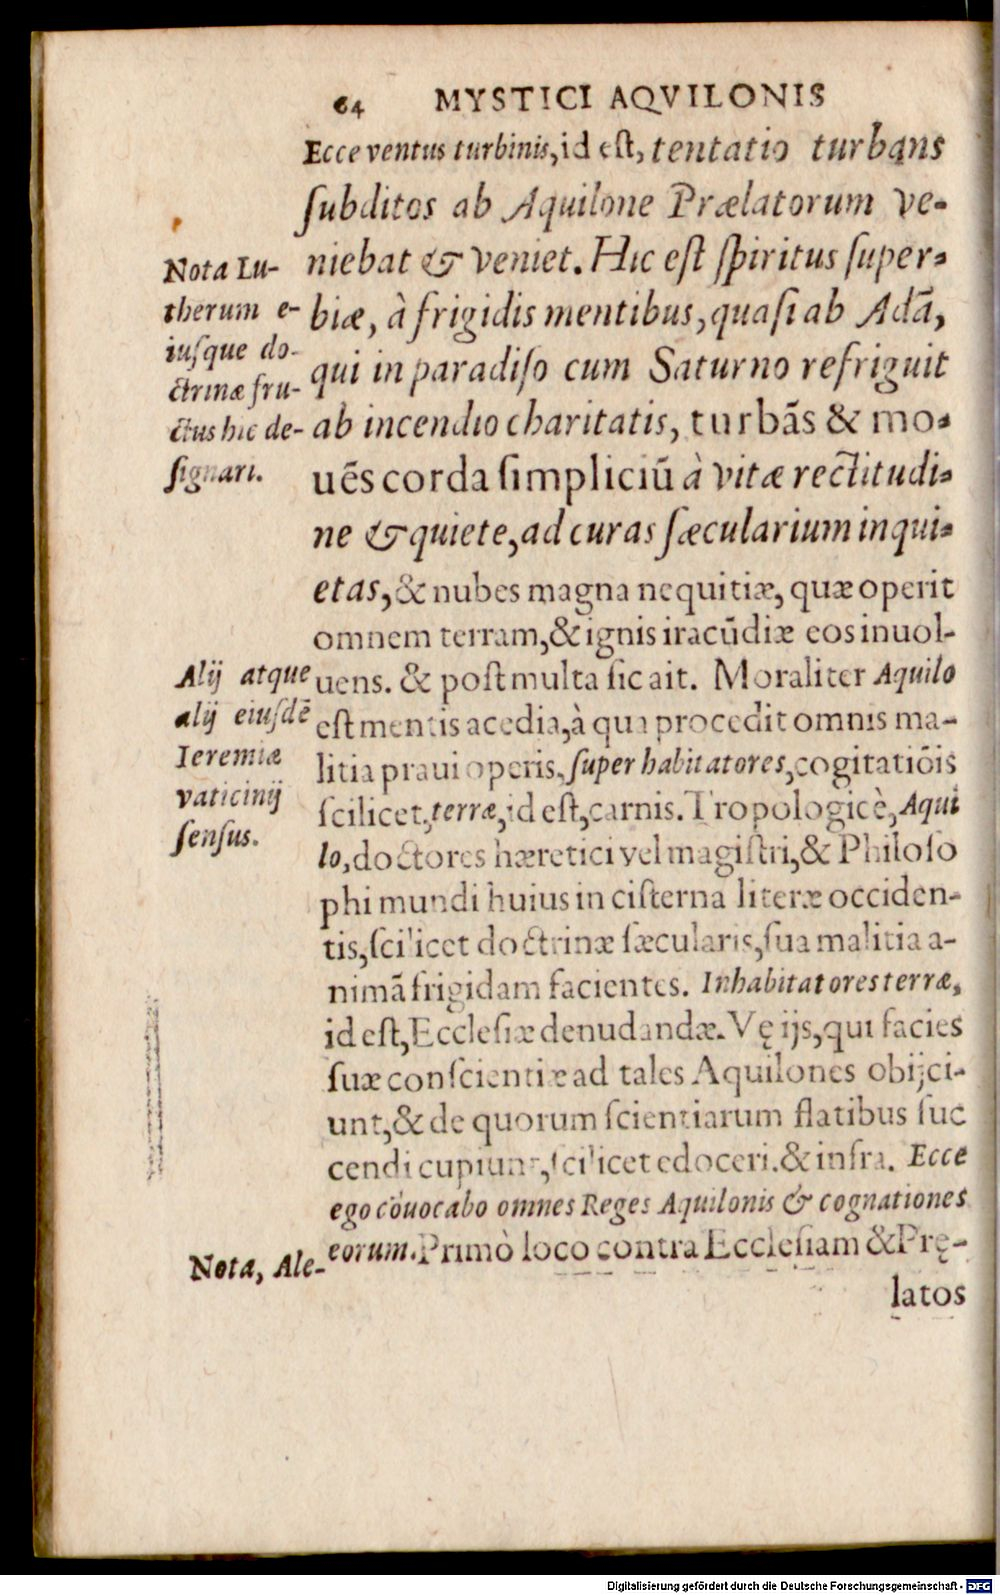 64 MYSTICI AQVILONIS
Ecce ventus turbinis, id est, tentatio turbans
subditos ab Aquilone Prælatorum ve-
niebat & veniet. Hic est spiritus super-
biæ, à frigidis mentibus, quasi ab Adã,
qui in paradiso cum Saturno refriguit
ab incendio charitatis, turbãs & mo-
uẽs corda simpliciũ à vitæ rectitudi-
ne & quiete, ad curas sæcularium inqui-
etas, & nubes magna nequitiæ, quæ operit
omnem terram, & ignis iracũdiæ eos inuol-
uens. & post multa sic ait. Moraliter Aquilo
est mentis acedia, à qua procedit omnis ma-
litia praui operis, super habitatores, cogitatiõis
scilicet, terræ, id est, carnis. Tropologicè, Aqui
lo, doctores hæretici vel magistri, & Philoso
phi mundi huius in cisterna literæ occiden-
tis, scilicet doctrinæ sæcularis, sua malitia a-
nimã frigidam facientes. Inhabitatores terræ,
id est, Ecclesiæ denudandæ. Vę ijs, qui facies
suæ conscientiæ ad tales Aquilones obijci-
unt, & de quorum scientiarum flatibus suc
cendi cupiunt, scilicet edoceri. & infra. Ecce
ego cõuocabo omnes Reges Aquilonis & cognationes
eorum. Primò loco contra Ecclesiam & Prę-
latos
Nota Lu-
therum e-
iusque do-
ctrinæ fru-
ctus hic de-
signari.
Alij atque
alij eiusdẽ
Ieremiæ
vaticinij
sensus.
Nota, Ale-
Digitalisierung gefördert durch die Deutsche Forschungsgemeinschaft - DFG